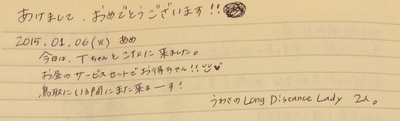 あけまして、おめでとうございます!!
2015.01.06(火) あめ
今日は、Tちゃんとこなに来ました。
お昼のサービスセットでお得ちゃん!!
鳥取にいる間にまた来まーす!
うわさのLong Discance Lady 2人。